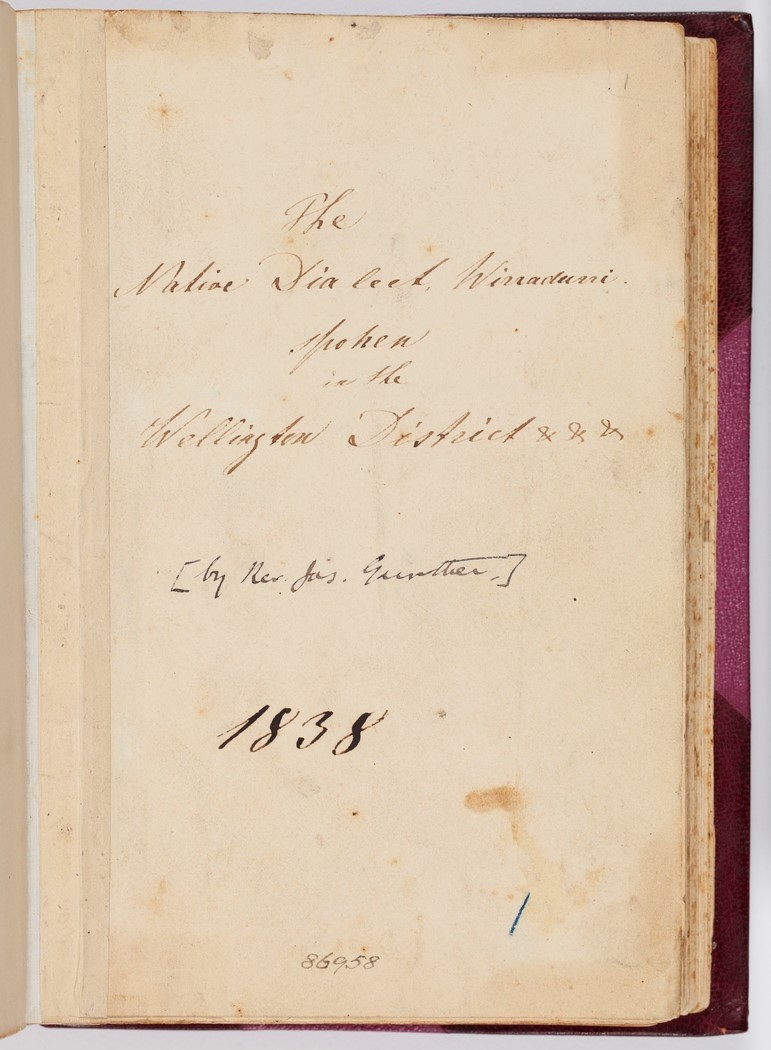 1
The
Native Dialect, Wiradurri.
spoken
in the
Wellington District
[by Rev. Jas. Gunther.]
1838
86958